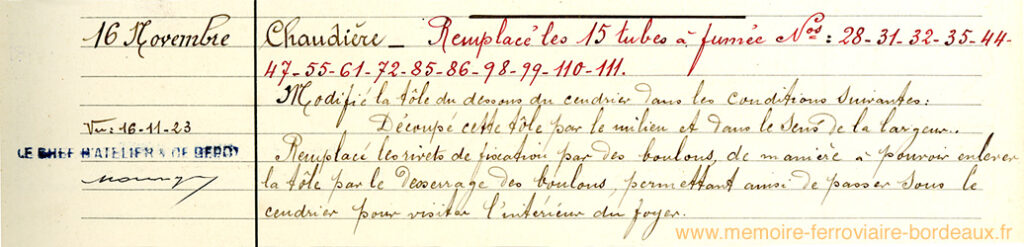 16 Novembre
Chaudière_ Remplacé les 15 tubes à fumée Nos: 28-31-32-35-44-
47-55-61-72-85-86-98-99-110-111.
Modifié la tôle du dessous du cendrier dans les conditions suivantes:
Découpé cette tôle par le milieu et dans le sens de la largeur..
Remplacé les rivets de fixation par des boulons, de manière à pouvoir enlever
la tôle par le desserrage des boulons, permettant ainsi de passer sous le
cendrier pour visiter l'intérieur du foyer.
Vu: 16-11-23
LE CHEF D'ATELIER DE DEPOT
www.memoire-ferroviaire-bordeaux.fr